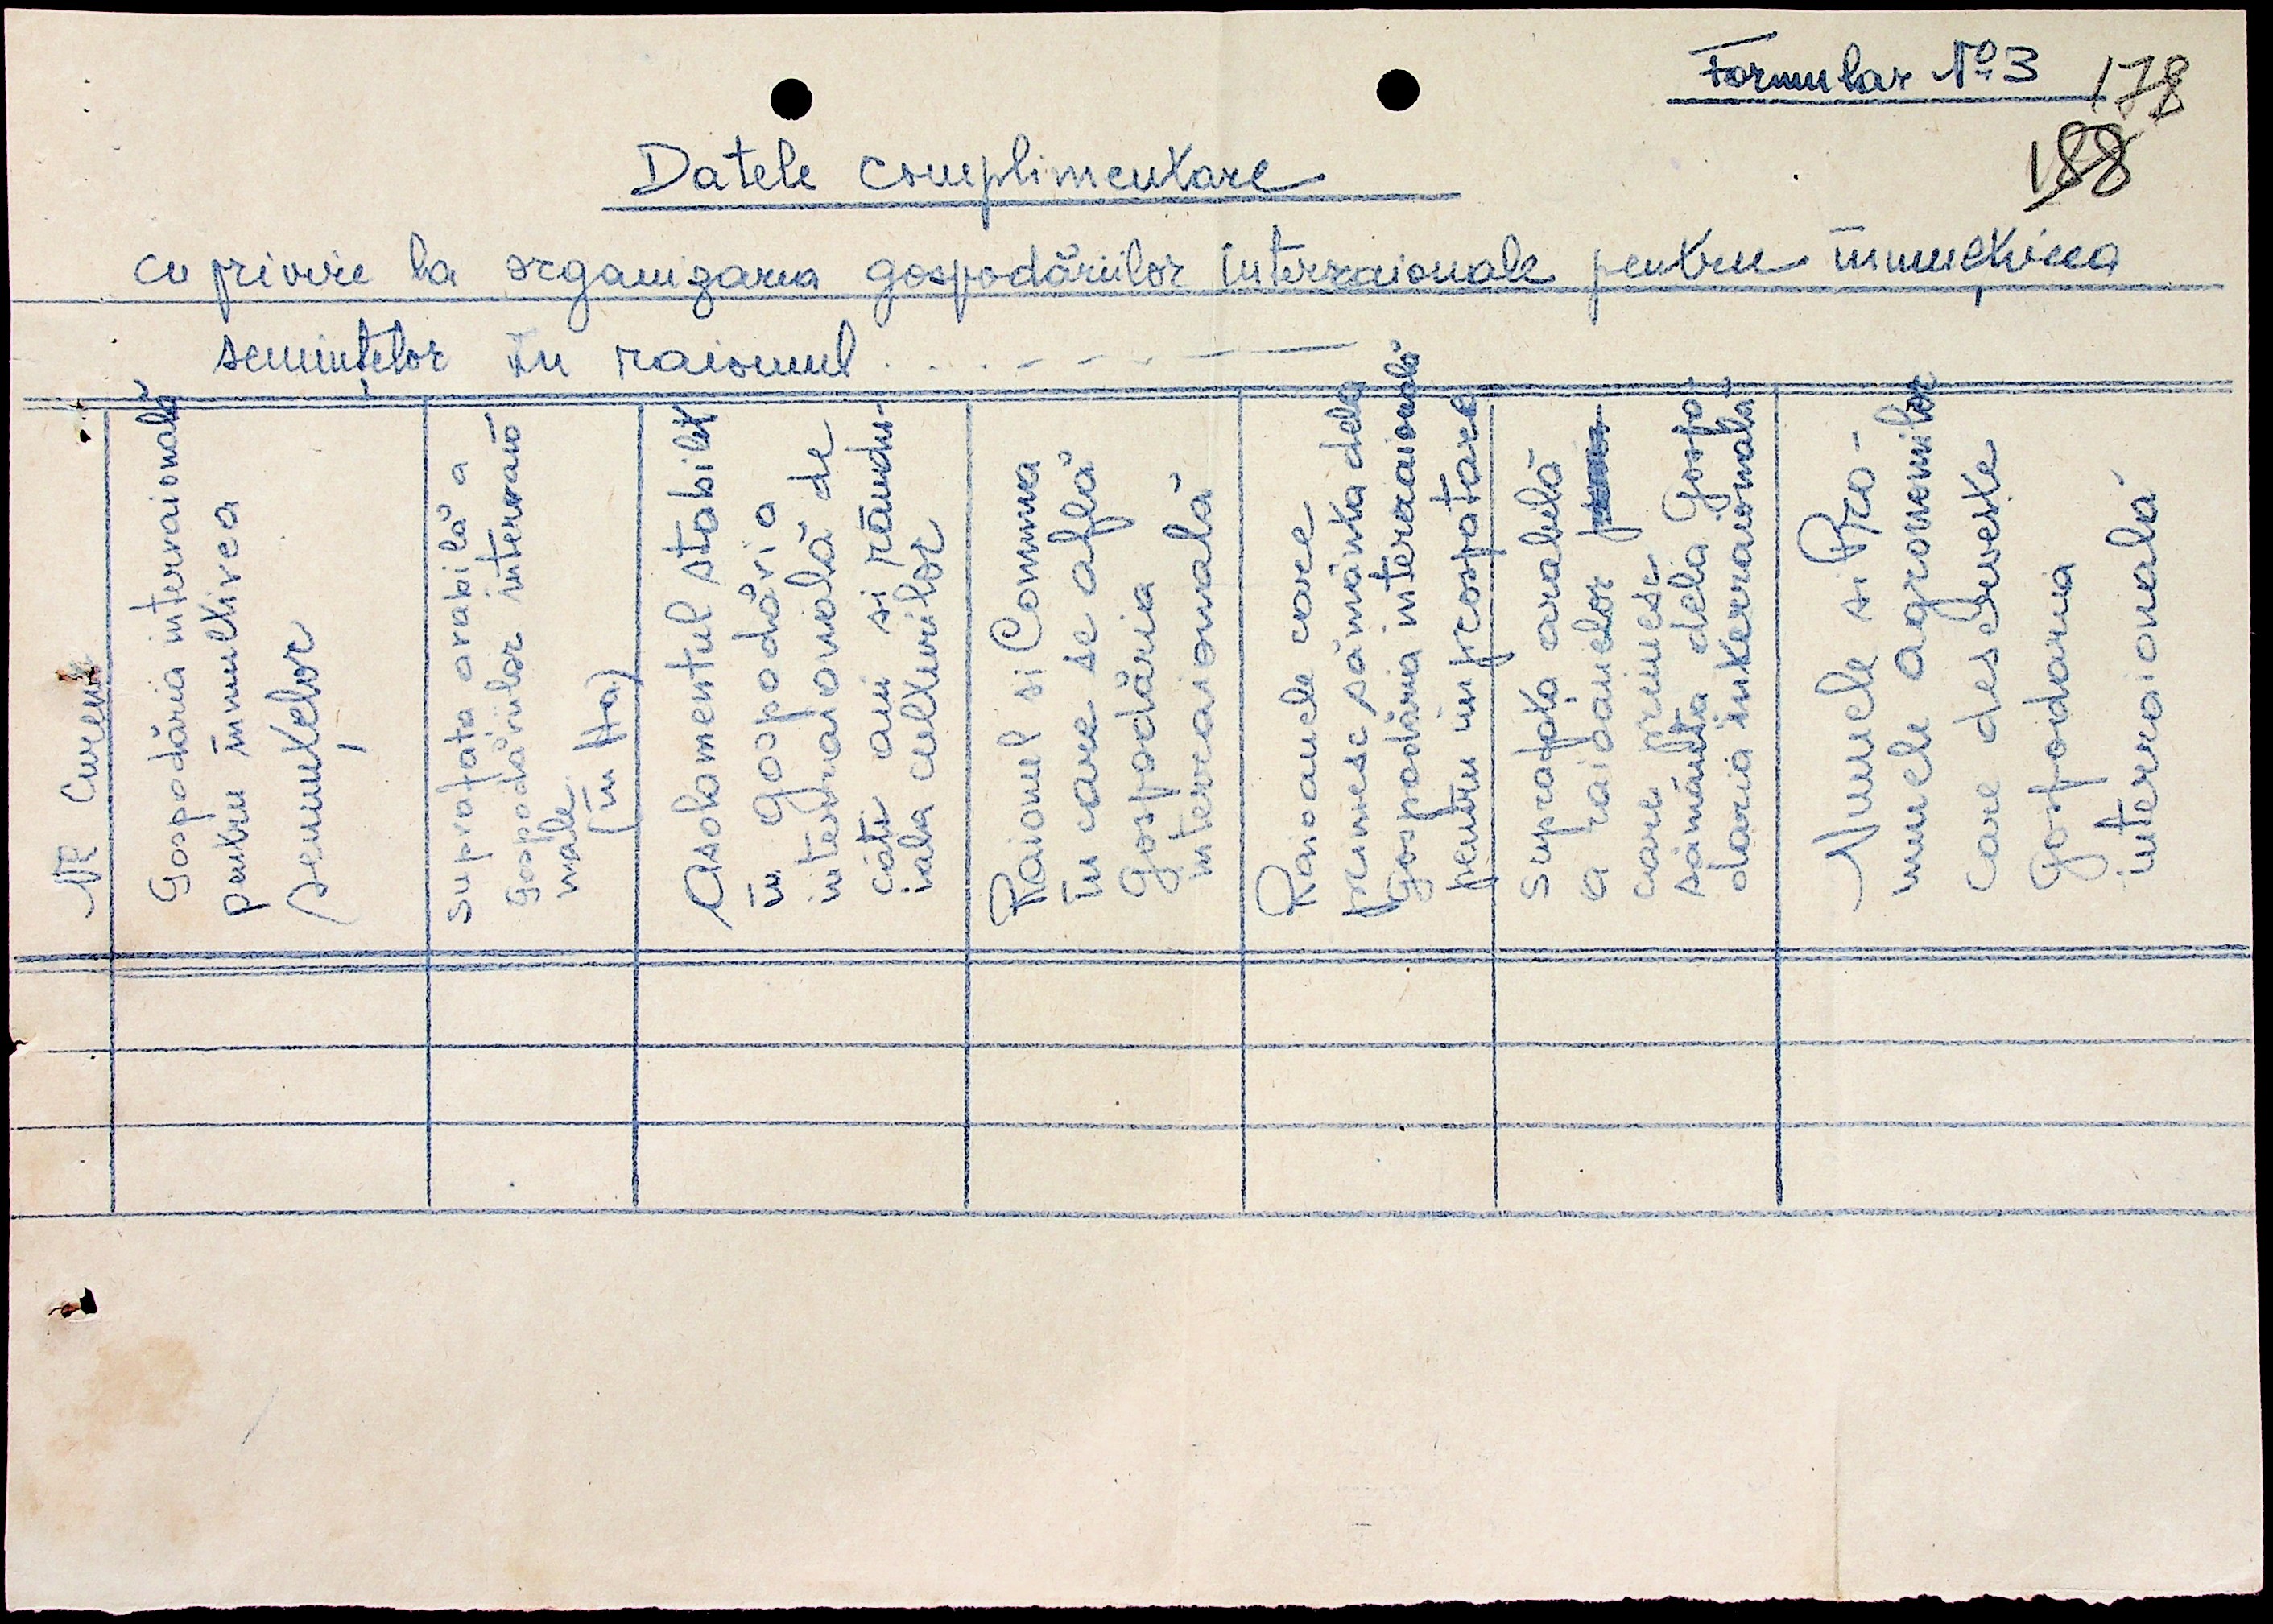 Formular Nº 3
178
188
Datele complimentare
cu privire la organizarea gospodăriilor interraionale pentru inmulțirea
semințelor in raionul . . . . - - -
Nº Curent
Gospodăria interraională
pentru inmultirea
semințelor
suprafata arabilă a
Gospodăriilor interraio
nale
(in Ha)
Asolamentul stabilit
in Gospodăria
interraională de
câti ani si rându-
iala culturilor
Raionul si Comuna
in care se află
Gospodăria
interraională
Raioanele care
primesc sământa dela
Gospodăria interraională
pentru improspatare
suprafața arabilă
a raioanelor
care primesc
sământa dela Gospo-
dăria interraională
Numele si Pro-
numele agronomilor
care deserveste
Gospodaria
interraională